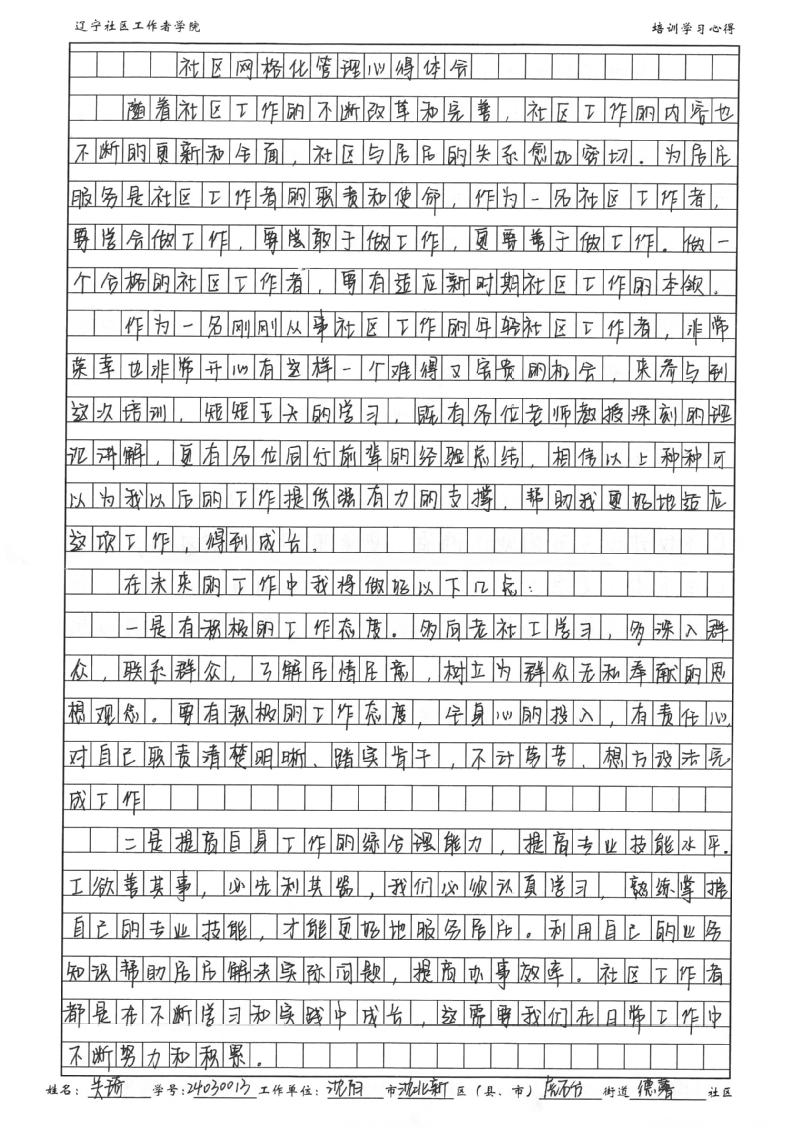 辽宁社区工作者学院 培训学习心得
社区网格化管理心得体会
随着社区工作的不断改革和完善，社区工作的内容也
不断的更新和全面，社区与居民的关系愈加密切。为居民
服务是社区工作者的职责和使命，作为一名社区工作者，
要学会做工作，要学敢于做工作，更要善于做工作。做一
个合格的社区工作者，要有适应新时期社区工作的本领。
作为一名刚刚从事社区工作的年轻社区工作者，非常
荣幸也非常开心有这样一个难得又宝贵的机会，来参与到
这次培训，短短五天的学习，既有各位老师教授深刻的理
论讲解，更有各位同行前辈的经验总结，相信以上种种可
以为我以后的工作提供强有力的支撑，帮助我更好地适应
这项工作，得到成长。
在未来的工作中我将做好以下几点：
一是有积极的工作态度。多向老社工学习，多深入群
众，联系群众，了解民情民意，树立为群众无私奉献的思
想观念。要有积极的工作态度，全身心的投入，有责任心，
对自己职责清楚明晰、踏实肯干，不计劳苦、想方设法完
成工作
二是提高自身工作的综合理能力，提高专业技能水平。
工欲善其事，必先利其器，我们必须认真学习，熟练掌握
自己的专业技能，才能更好地服务居民。利用自己的业务
知识帮助居民解决实际问题，提高办事效率。社区工作者
都是在不断学习和实践中成长，这需要我们在日常工作中
不断努力和积累。
姓名： 学号：24030013 工作单位：沈阳 市 沈北新 区（县、市） 虎石台 街道 社区